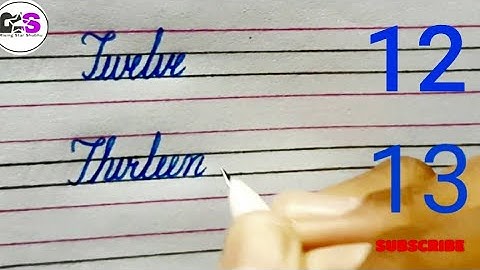 GS
Rising Star Shobhit
Twelve 12
Thirteen 13
SUBSCRIBE